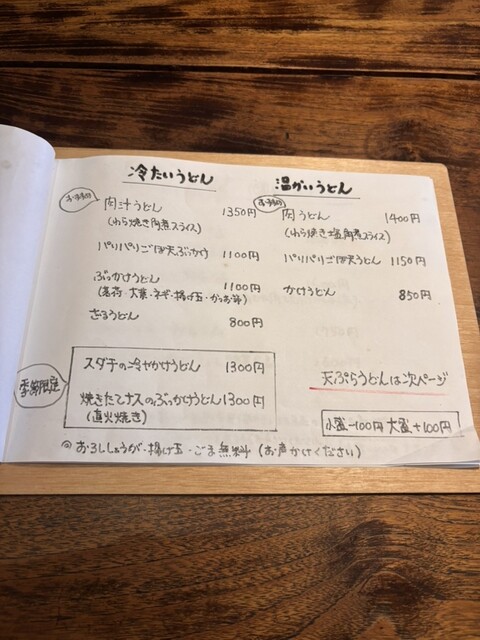 冷たいうどん
おすすめ
肉汁うどん 1350円
(わら焼き角煮スライス)
パリパリごぼ天ぶっかけ 1100円
ぶっかけうどん 1100円
(茗荷・大葉・ネギ・揚げ玉・かつお節)
ざるうどん 800円
季節限定
スダチの冷やかけうどん 1300円
焼きたてナスのぶっかけうどん 1300円
(直火焼き)
温かいうどん
おすすめ
肉うどん 1400円
(わら焼き塩角煮スライス)
パリパリごぼ天うどん 1150円
かけうどん 850円
天ぷらうどんは次ページ
小盛-100円 大盛+100円
@おろししょうが・揚げ玉・ごま無料(お声かけください)